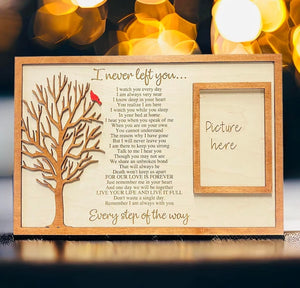 I never left you...
I watch you every day
I am always very near
I know deep in your heart
You realize I am here
I watch you while you sleep
In your bed at home
I hear you when you speak of me
When you are on your own
You cannot understand
The reason why I have gone
But I will never leave you
I am there to keep you strong
Talk to me I hear you
Though you may not see
We share an unbreakable
That will always be
Death won't keep us apart
FOR OUR LOVE IS FOREVER
Just remember me in your heart
And one day we will be together
LIVE YOUR LIFE AND LIVE IT FULL
Don't waste a single day
Remember I am always with you
Every step of the way
Picture
here